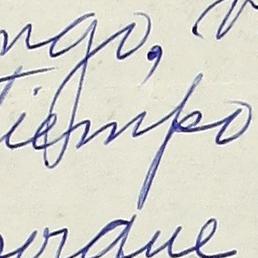 ngo,
Tiempo
orque